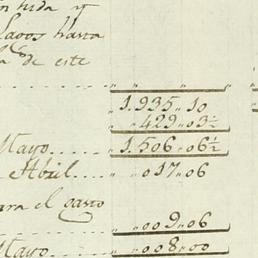 n hida y
Lavos hasta
la de este
1.935,,10
,, 429,,03½
Mayo..... 1.506,,06½
Abril.... ,, 017,,06
ara el gasto
,, 009,,06
Mayo..... ,, 008,,00